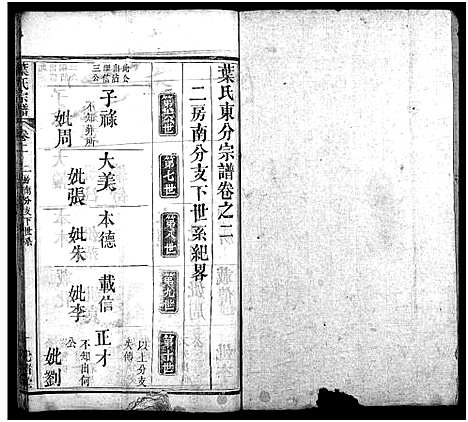 葉氏東分宗譜卷之二
二房南分支下世系紀畧
第六世
第七世
第八世
第九世
第十世
子祿
不知葬所
妣周
大美
妣張
本德
妣朱
載信
妣李
正才
以上分支
失傳
不知由何
公
妣劉
葉氏宗譜
卷二
房南分支下世系